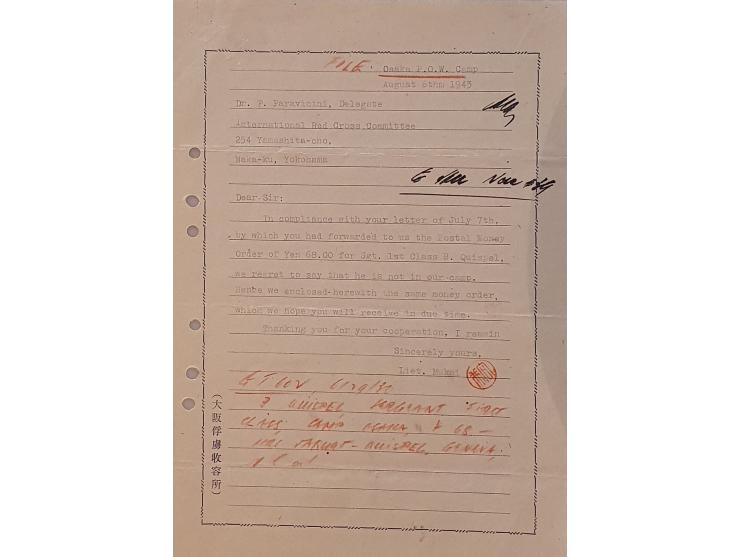 FILE. Osaka P.O.W. Camp
August 6thm 1943
Dr. P. Paravicini, Delegate
International Red Cross Committee
254 Yamashita-cho,
Naka-ku, Yokohama
Dear Sir:
In compliance with your letter of July 7th,
by which you had forwarded to us the Postal Money
Order of Yen 68.00 for Sgt. 1st Class B. Quispel,
we regret to say that he is not in our camp.
Hence we enclosed herewith the same money order,
which we hope you will receive in due time.
Thanking you for your cooperation, I remain
Sincerely yours,
Liet. Mukai
QUISPEL SERGEANT FIRST
CLASS, CAMP OSAKA, 68 —
QUISPEL, GENEVA,
(大阪俘虜收容所)